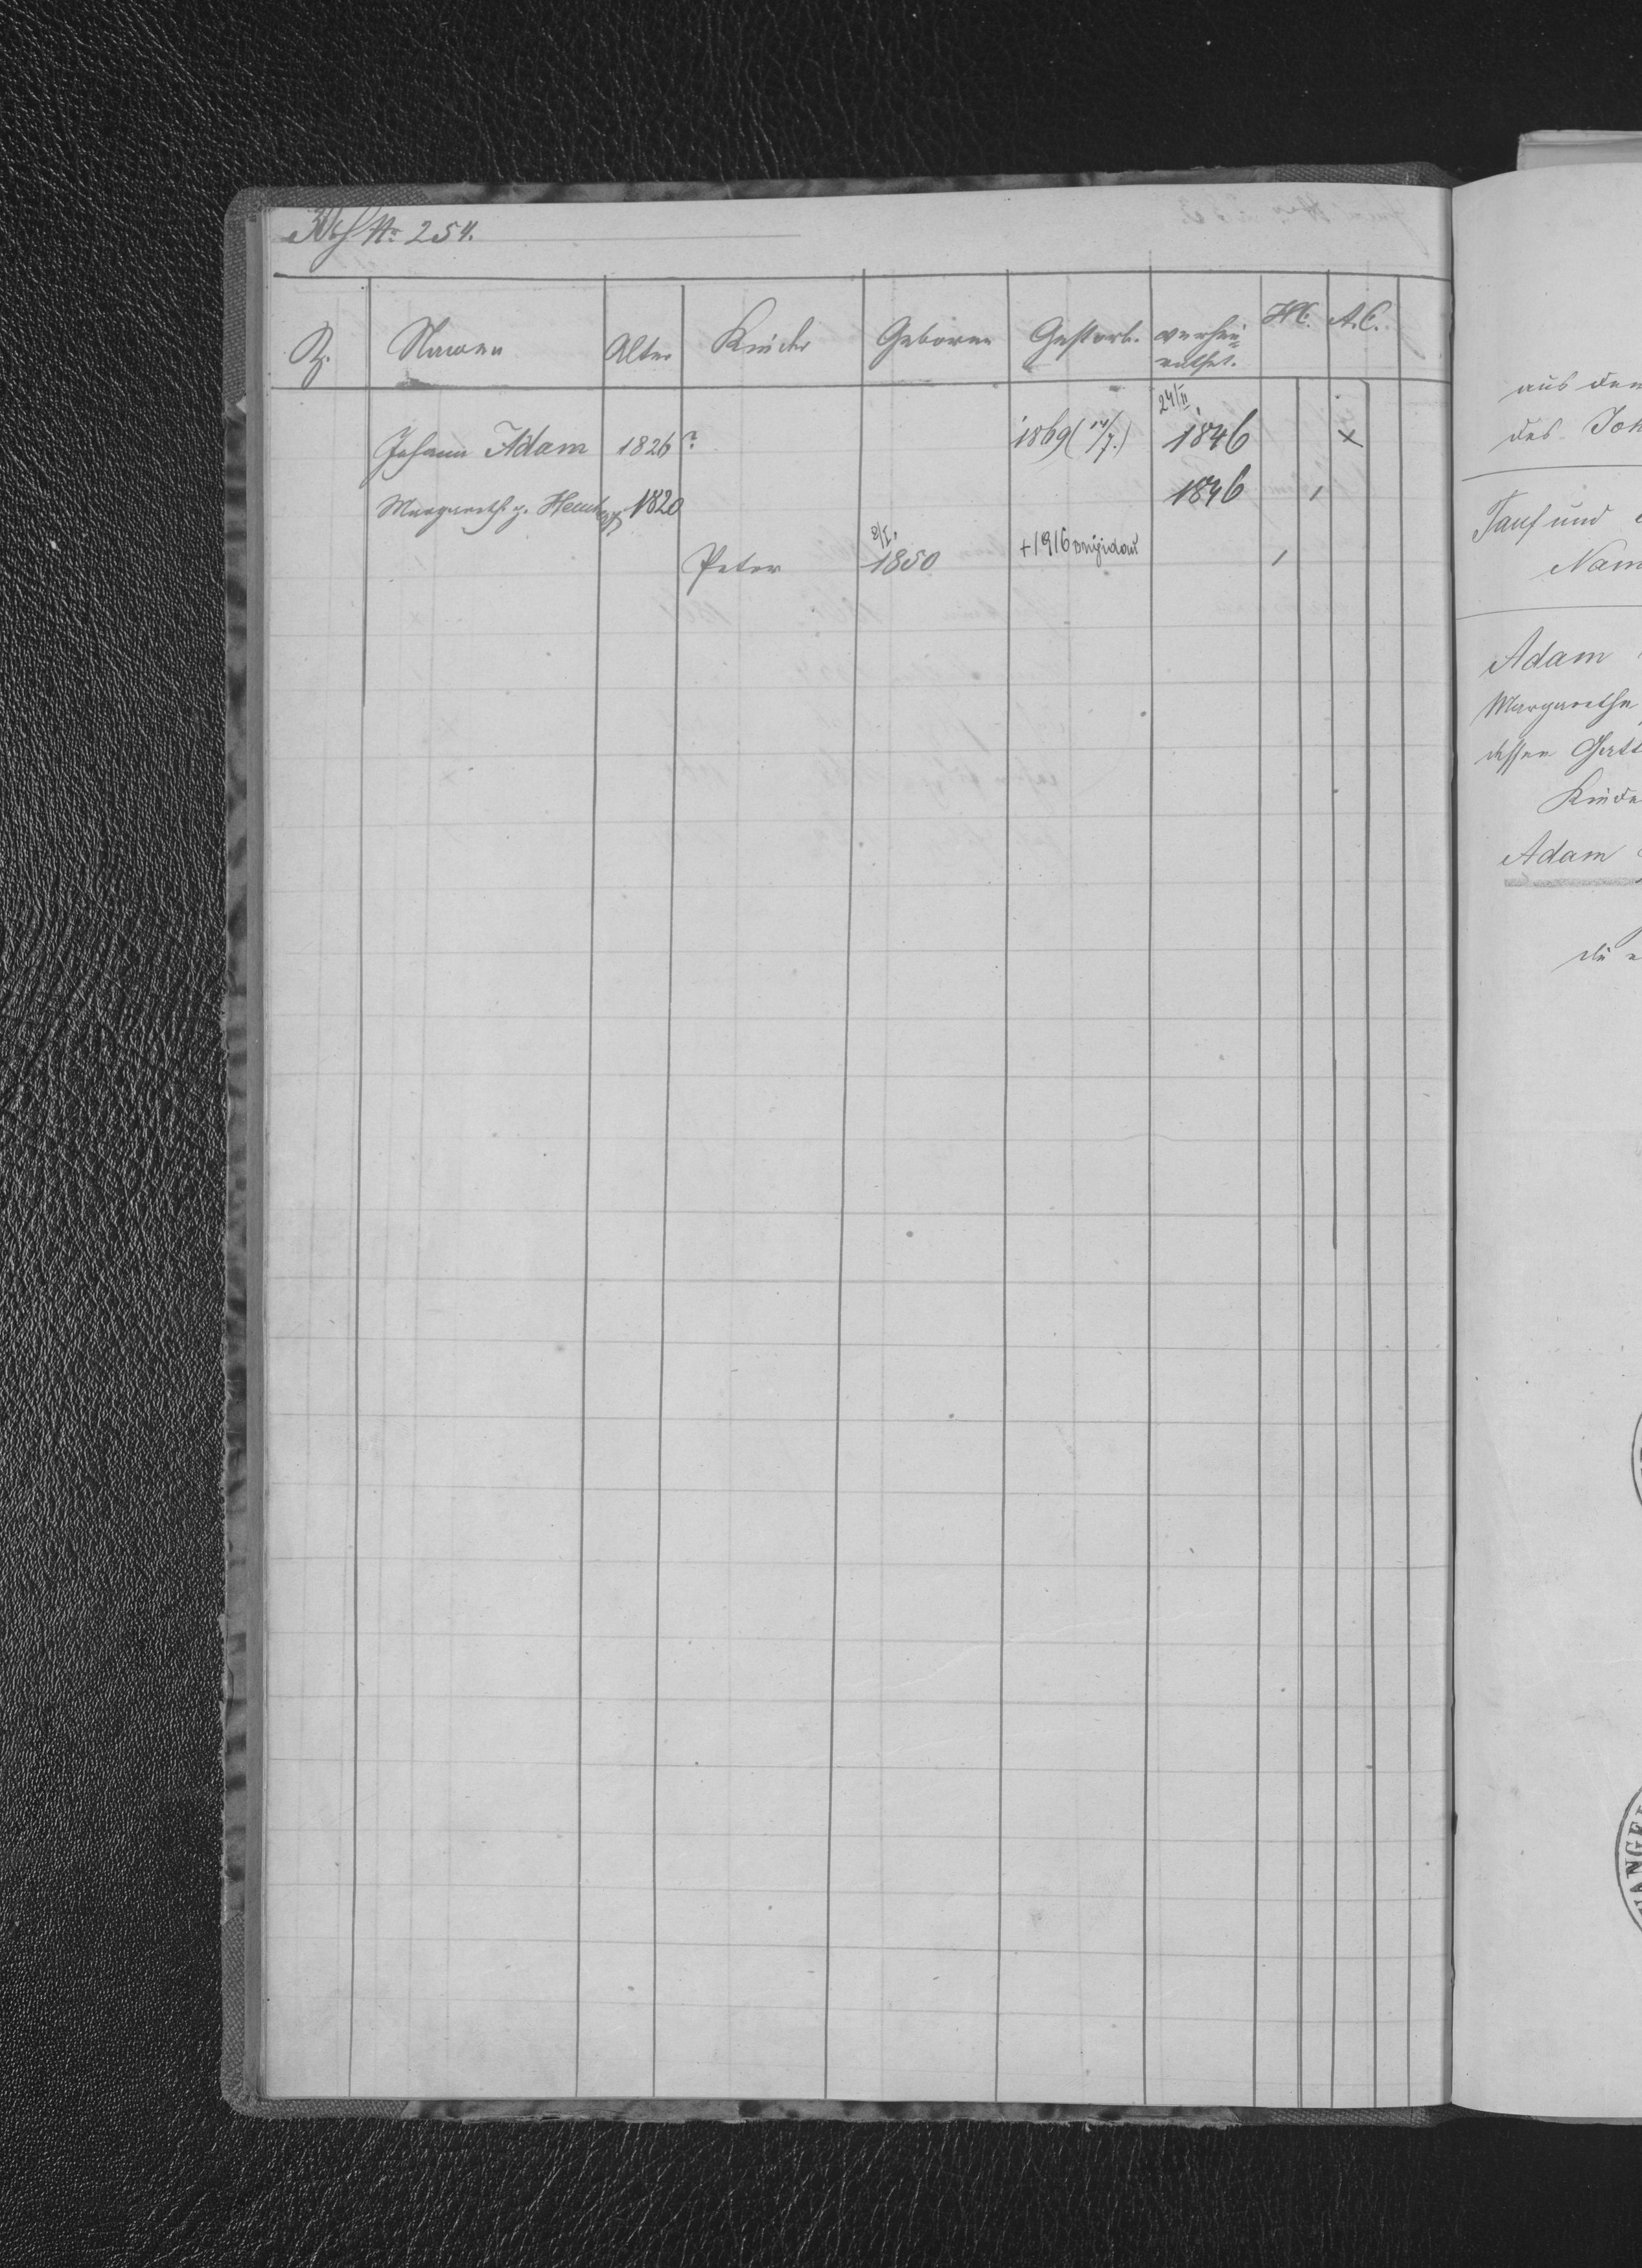 № 254.
Z. Namen Alter Kinder Geboren Gestorb. verhei=
rathet. H.C. A.C.
24/II.
Johann Adam 1826? 1869 ( /7.) 1846 x
Margareth g. 1820 1846
Peter 1850 +1916
aus dem
des Joh
Tauf und
Nam
Adam
Margarethe
dessen Gatt
Kinde
Adam
die
ANGEL